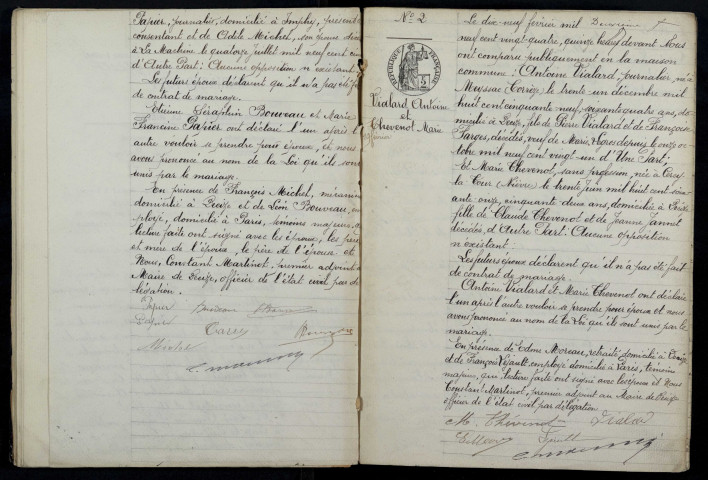 Papier, journalier, domicilié à Imphy, présent
consentant et de Adèle Michel, son épouse
à La Machine le quatorze juillet mil neuf cent cinq
d'Autre Part: Aucune opposition n'existant.
Les futurs époux déclarent qu'il n'a pas été fait
de contrat de mariage.
Etienne Séraphin Bouveau et Marie
Francine Papier ont déclaré l'un après l'
autre vouloir se prendre pour époux, et nous
avons prononcé au nom de la Loi qu'ils sont
unis par le mariage.
En présence de François Michel,
domicilié à et de Léon Bouveau, em
ployé, domicilié à Paris, témoins majeurs,
lecture faite ont signé avec les époux, les père
et mère de l'époux, le père de l'épouse et
Nous, Constant Martinot, premier adjoint au
Maire de officier de l'état civil par dé
légation.
Papier
Michel
No 2
RÉPUBLIQUE FRANÇAISE
Vialard Antoine
et
Chevenot Marie
Le dix-neuf février mil
neuf cent vingt-quatre, quinze heures devant Nous
ont comparu publiquement en la maison
commune: Antoine Vialard, journalier, né à
Meyssac Corrèze le trente un décembre mil
huit cent cinquante-neuf, soixante quatre ans, do
micilié à fils de Pierre Vialard et de Françoise
Farges, décédés, veuf de Marie depuis le onze oc
tobre mil neuf cent vingt-un d'Une Part;
Et Marie Chevenot, sans profession, née à Cercy
la Tour (Nièvre) le trente Juin mil huit cent soixan
te onze, cinquante deux ans, domiciliée à
fille de Claude Chevenot et de Jeanne Jannet
décédés, d'Autre Part: Aucune opposition
n'existant.
Les futurs époux déclarent qu'il n'a pas été fait
de contrat de mariage.
Antoine Vialard et Marie Chevenot ont déclaré
l'un après l'autre vouloir se prendre pour époux et nous
avons prononcé au nom de la Loi qu'ils sont unis par le
mariage.
En présence de Edme Moreau, retraité domicilié à
et de François employé domicilié à Paris, témoins
majeurs, qui lecture faite ont signé avec les époux et Nous
Constant Martinot, premier adjoint au Maire de
officier de l'état civil par délégation.
M. Thévenot Vialard